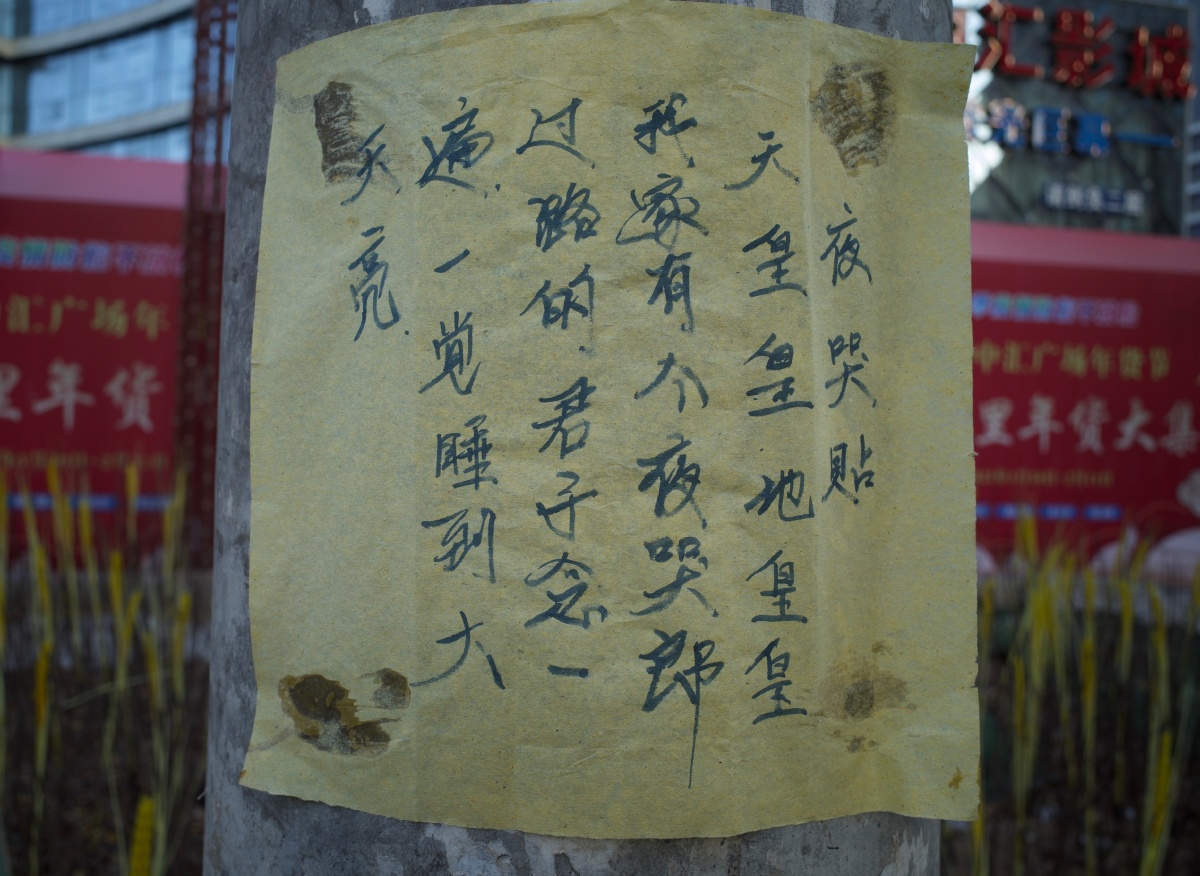 夜哭贴
天皇皇地皇皇
我家有个夜哭郎
过路的君子念一
遍一觉睡到大
天亮
汇影城
中汇广场年
里年货
中汇广场年货节
里年货大集